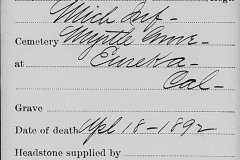 Mich Inf-
Cemetery Myrtle Grove-
at Eureka-
Cal-
Grave
Date of death Apl 18-1892
Headstone supplied by